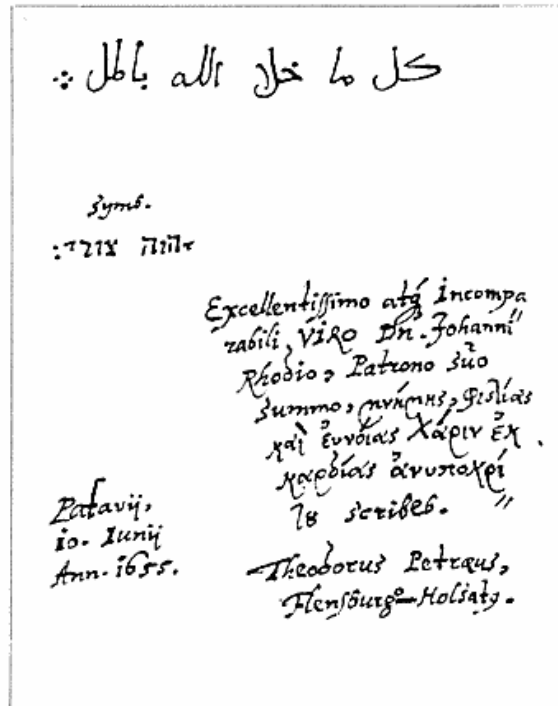 كل ما خلا الله باطل ⁘
symb.
יהוה צורי:
Excellentissimo atq́ Incompa〃
rabili, VIRO Dn. Johanni
Rhodio, Patrono suo
summo, μνήμης, φιλίας
καὶ ἐυνοίας χάριν ἐκ
καρδίας ἀνυποκρί〃
τȣ scribeb.
Patavij,
10. Iunij
Ann. 1655.
Theodorus Petræus,
Flensburgo-Holsatꝰ.